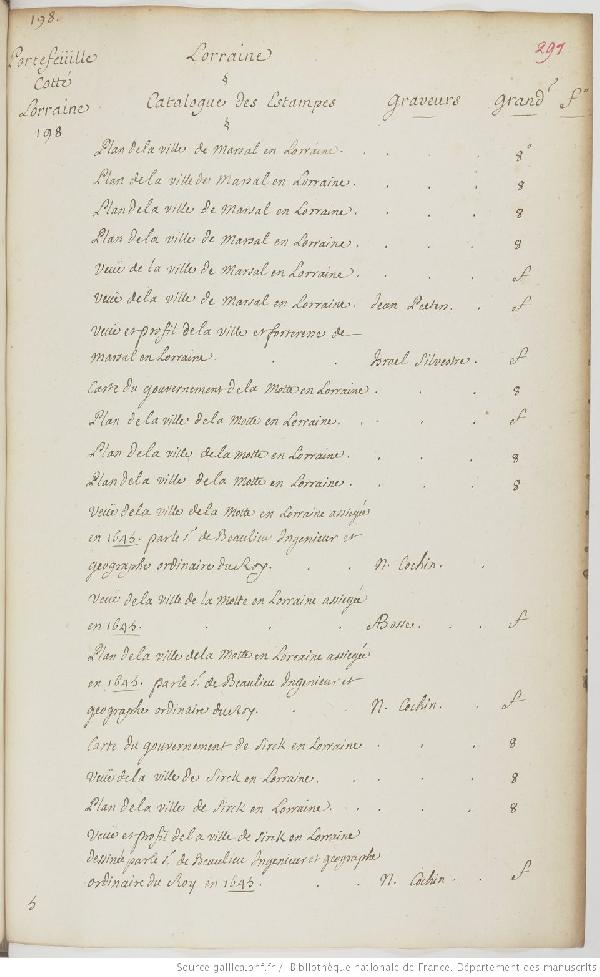 198.
Portefeüille
Cotté
Lorraine
198
Lorraine
297
Catalogue des Estampes Graveurs Grand.r f.o
Plan de la ville de Marsal en Lorraine. . . . 8°
Plan de la ville de Marsal en Lorraine. . . . 8
Plan de la ville de Marsal en Lorraine. . . . 8
Plan de la ville de Marsal en Lorraine. . . . 8
Veüe de la ville de Marsal en Lorraine. . . . f
Veüe de la ville de Marsal en Lorraine. Jean Peeters. . f
Veüe et profil de la ville et forteresse de
Marsal en Lorraine. . . Israel Silvestre. f
Carte du gouvernement de la Motte en Lorraine. . . 8
Plan de la ville de la Motte en Lorraine. . . . f
Plan de la ville de la Motte en Lorraine. . . . 8
Plan de la ville de la Motte en Lorraine. . . . 8
Veüe de la ville de la Motte en Lorraine assiegée
en 1645. par le S.r de Beaulieu Ingenieur et
geographe ordinaire du Roy. . . N. Cochin. .
Veüe de la ville de la Motte en Lorraine assiegée
en 1645. . . . ABosse. . . f
Plan de la ville de la Motte en Lorraine assiegée
en 1645. par le S.r de Beaulieu Ingenieur et
geographe ordinaire du Roy. . . N. Cochin. . f
Carte du gouvernement de Sirck en Lorraine . . . 8
Veüe de la ville de Sirck en Lorraine. . . . 8
Plan de la ville de Sirck en Lorraine. . . . 8
Veüe et profil de la ville de Sirck en Lorraine
dessinée par le S.r de Beaulieu Ingenieur et geographe
ordinaire du Roy en 1645. . . N. Cochin. . f
5
Source gallica.bnf.fr / Bibliothèque nationale de France. Département des manuscrits